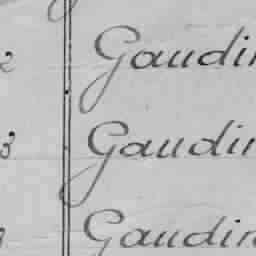 2 Gaudin
3 Gaudin
Gaudin